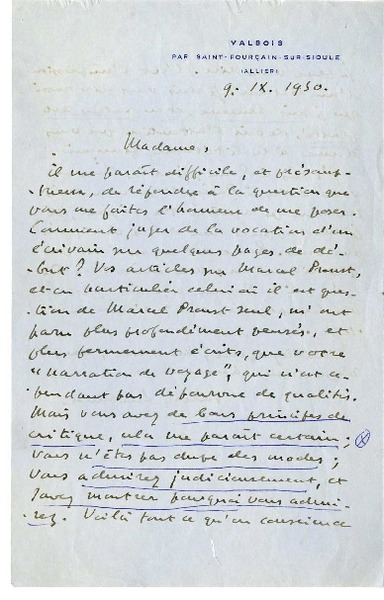 VALBOIS
PAR SAINT-POURÇAIN-SUR-SIOULE
(ALLIER)
9. IX. 1950.
Madame,
il me paraît difficile, et présomp-
tueux, de répondre à la question que
vous me faites l'honneur de me poser.
Comment juger de la vocation d'un
écrivain sur quelques pages de dé-
but ? Vos articles sur Marcel Proust,
et en particulier celui où il est ques-
tion de Marcel Proust seul, m'ont
paru plus profondément pensés, et
plus fermement écrits, que votre
"narration de voyage", qui n'est ce-
pendant pas dépourvue de qualités.
Mais vous avez de bons principes de
critique, cela me paraît certain ;
vous n'êtes pas dupe des modes ;
vous admirez judicieusement, et
savez montrer pourquoi vous admi-
rez. Voilà tout ce qu'en conscience